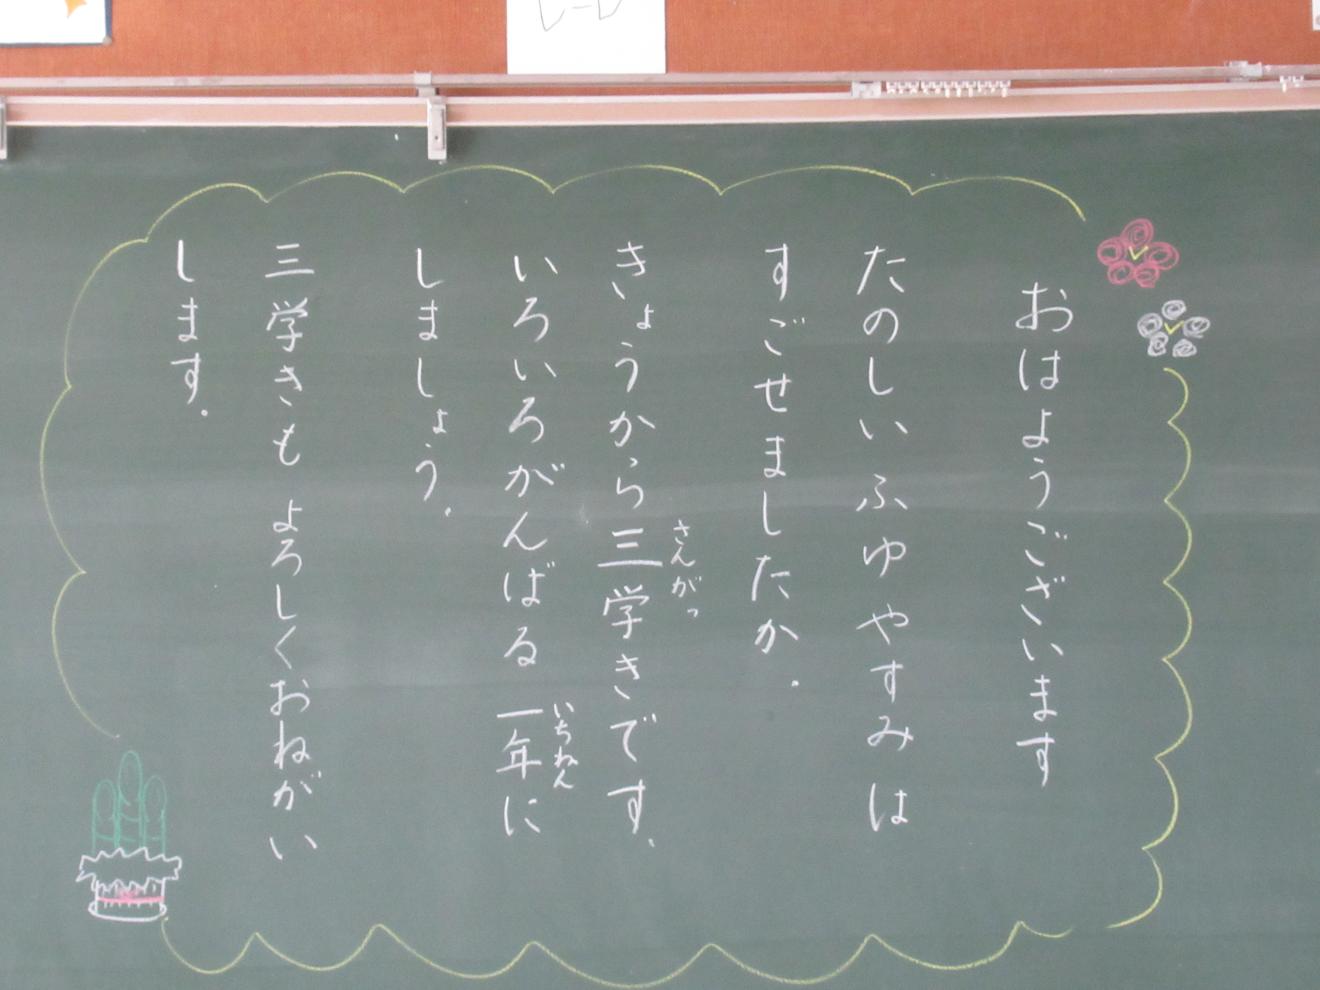 おはようございます
たのしいふゆやすみは
すごせましたか.
きょうから三学きです.
さんがっ
いろいろがんばる一年に
いちねん
しましょう.
三学きも よろしくおねがい
します.